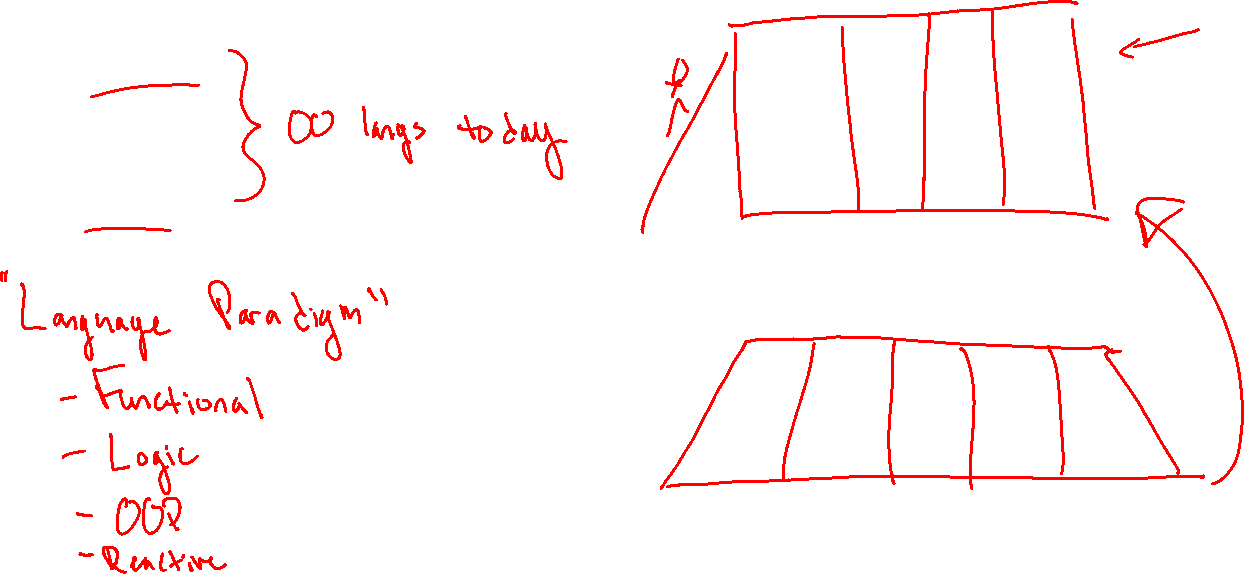 OO langs today
"Language Paradigm"
- Functional
- Logic
- OOP
- Reactive